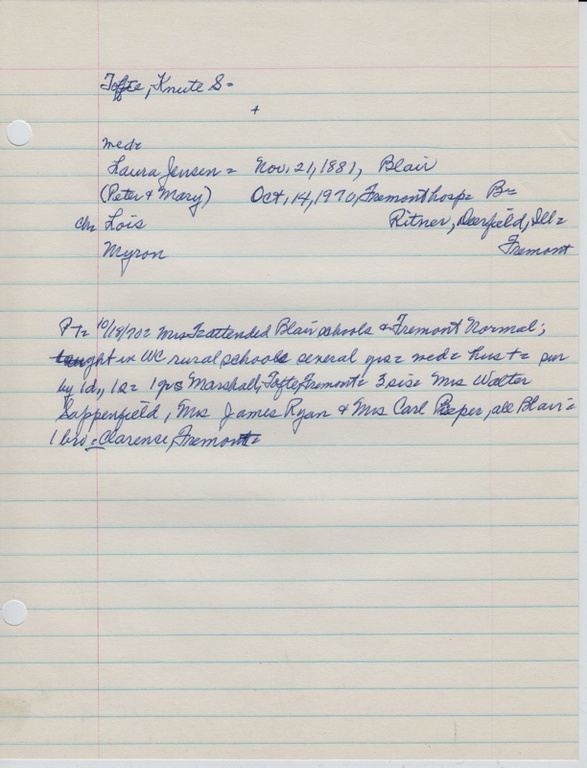 Tofte, Knute S=
+
med=
Laura Jensen = Nov. 21, 1881, Blair
(Peter & Mary) Oct, 14, 1970, Fremont hosp= B=
ch= Lois Ritner, Deerfield, Ill=
Myron Fremont
PT= 10/19/70= Mrs T= attended Blair schools & Fremont Normal;
taught in WC rural schools several yrs= med= hus += sur
by 1d,, 1s= 1 grs Marshall, Tofte, Fremont= 3 sis= Mrs Walter
Sappenfield, Mrs James Ryan & Mrs Carl Pieper, all Blair=
1 bro= Clarence, Fremont=